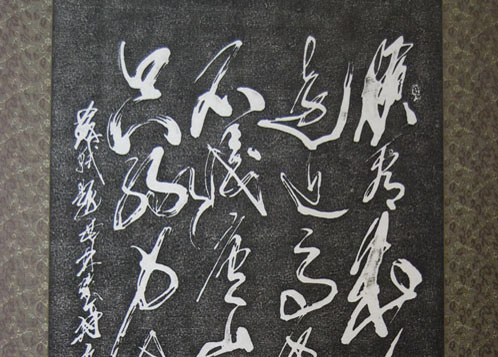 橫看成
遠近高
不識廬山
只緣身
蘇軾題西林壁詩